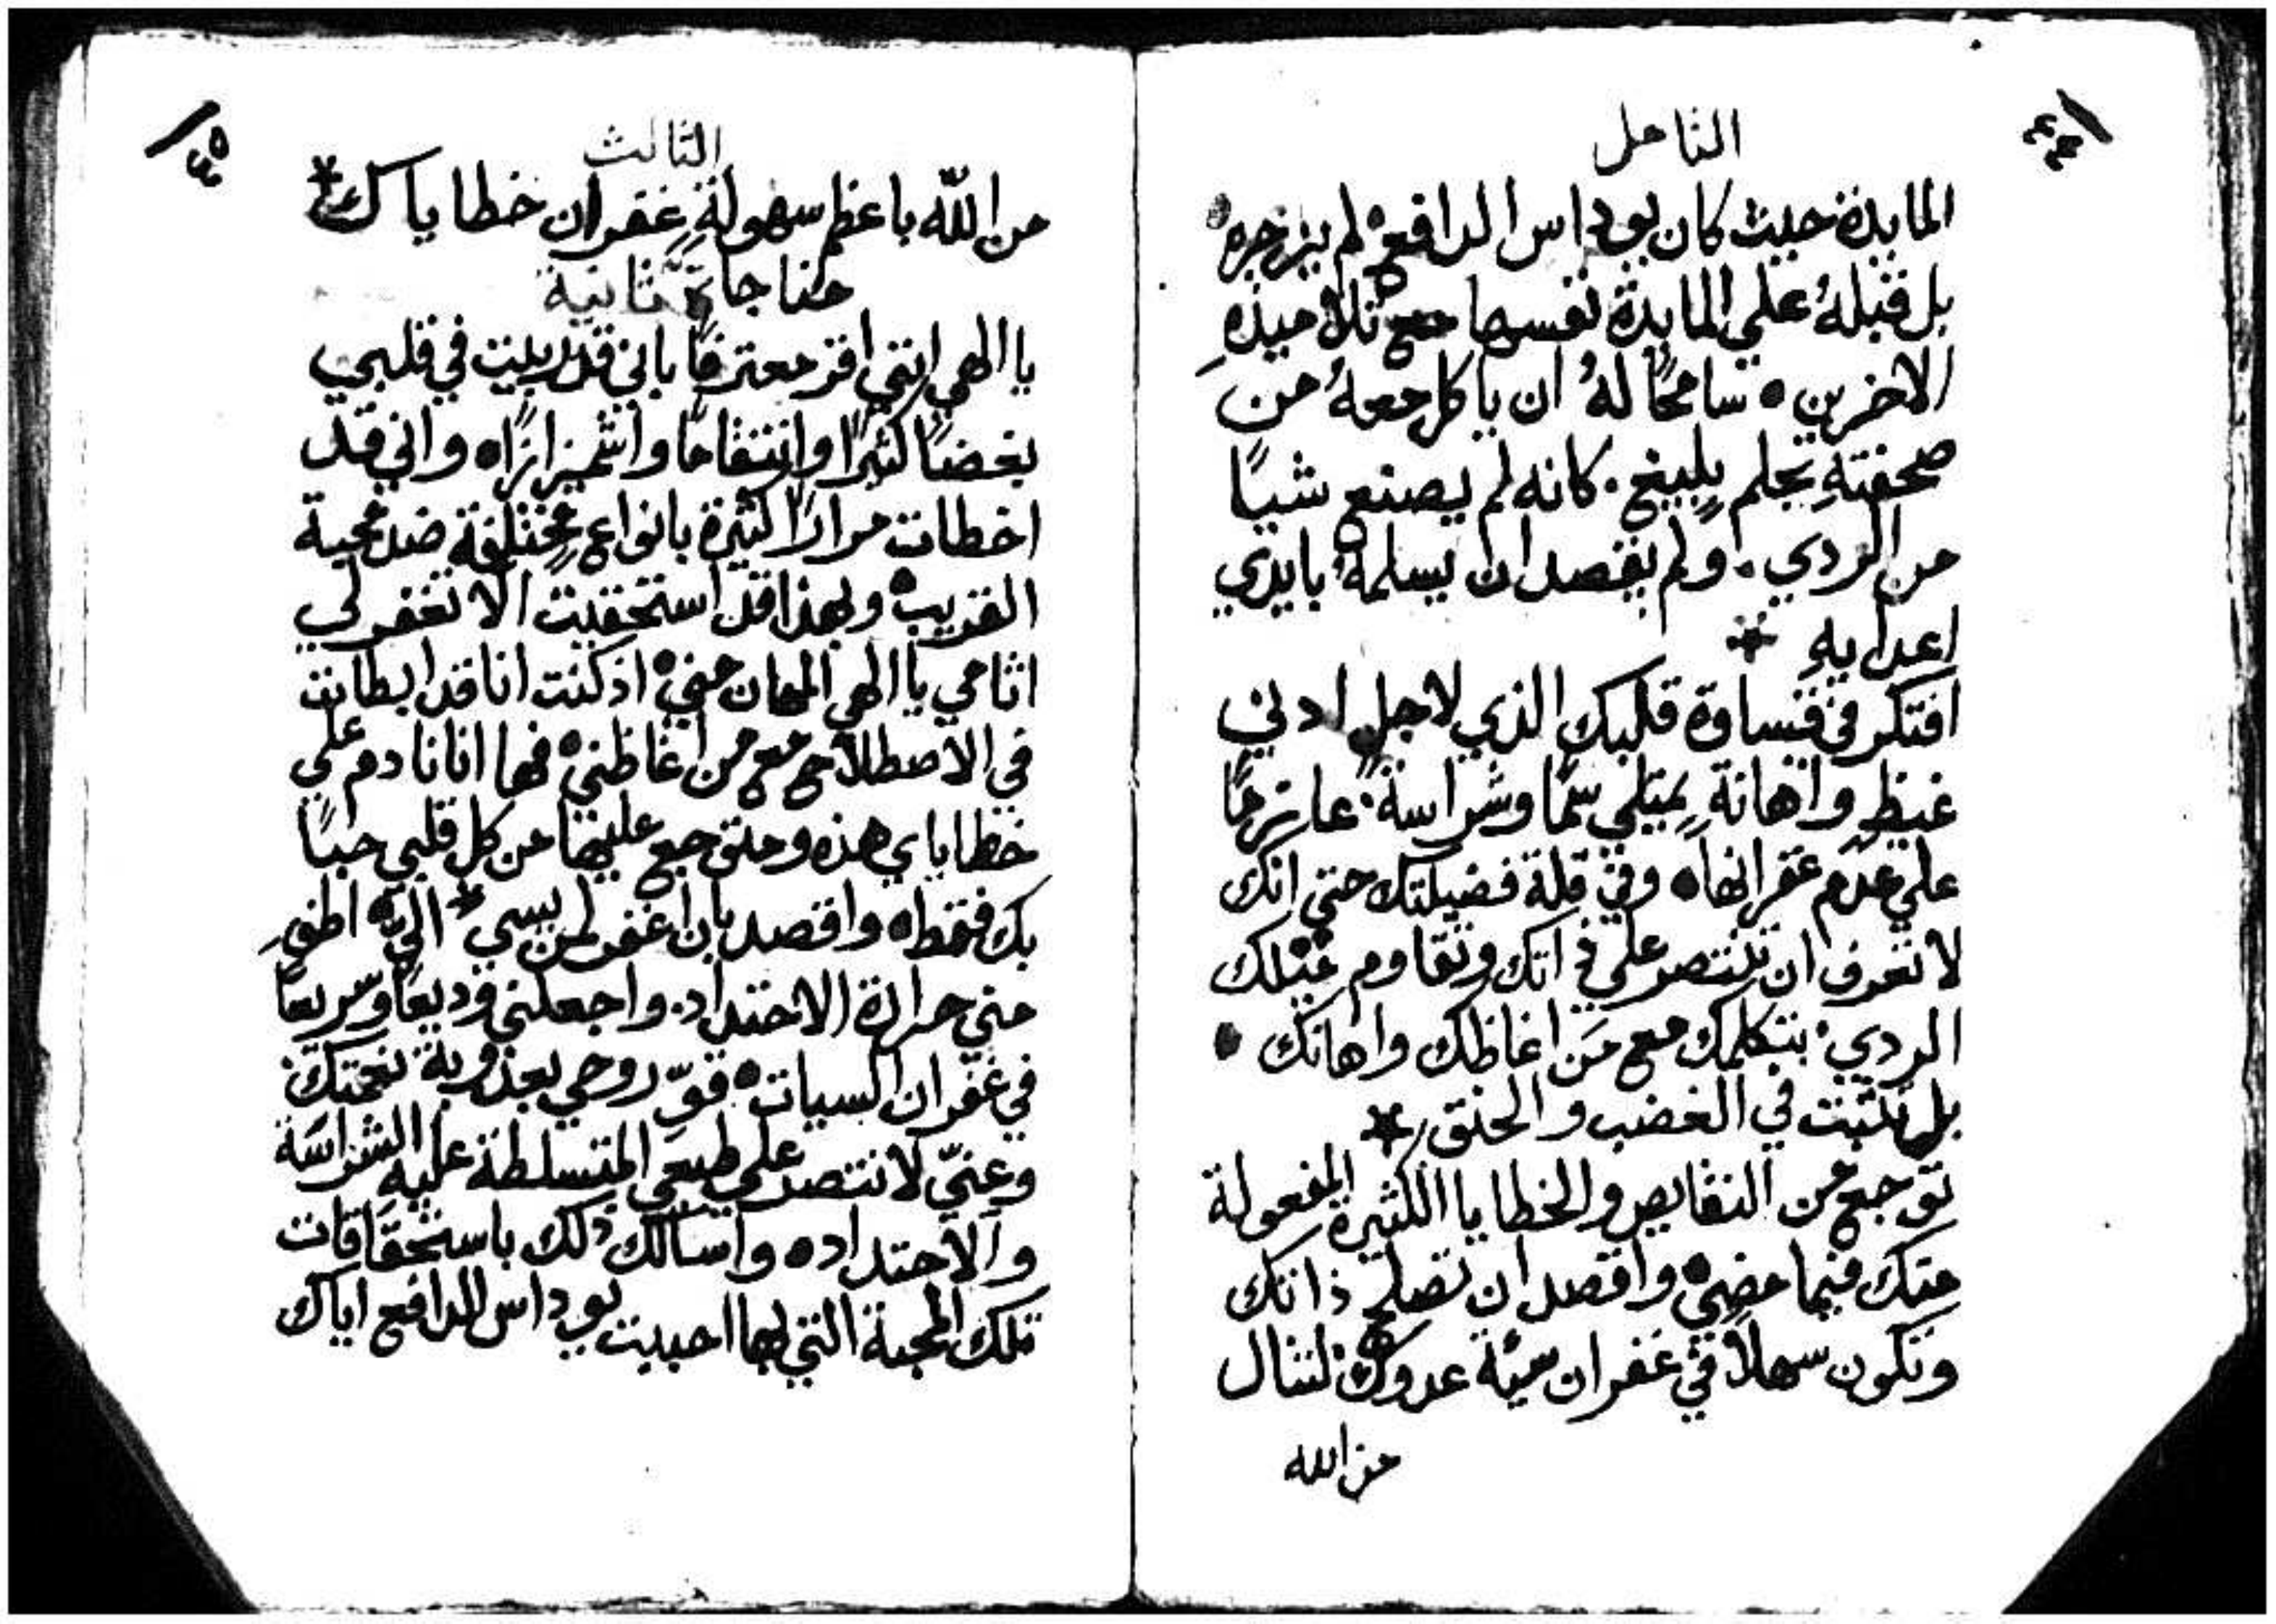 ٤٤
التامل
المايدة حيث كان يوداس الدافع لم يزجره
بل قبله علي المايدة نفسها مع تلاميذه
الاخرين ٥ سامحًا لهُ ان ياكل معهُ من
صحفتهِ بحلم بليغ. كانه لم يصنع شيًا
من الردي. ولم يقصد ان يسلمهُ بايدي
اعدايهِ *
افتكر في قساوة قلبك الذي لاجل ادني
غيظ واهانةٍ يمتلي سمًا وشراسةً. عازمًا
علي عدم غفرانها ٥ وفي قلة فضيلتك حتي انك
لا تعرف ان تنتصر علي ذاتك وتقاوم ميلك
الردي. بتكلمك مع مَن اغاظك واهانك ٥
بل تثبت في الغضب والحنق *
توجع من النقايص والخطايا الكثيرة المفعولة
منك فيما مضي ٥ واقصد ان تصلح ذاتك
وتكون سهلاً في غفران سيئة عدوك لتنال
من الله
٤٥
الثالث
من اللّه باعظم سهولةٍ غفران خطاياك *
مناجاة ثانية
يا الهي انني اقر معترفًا باني قد ربيت في قلبي
بغضًا كثيرًا وانتقامًا واشميزازًا ٥ واني قد
اخطات مرارًا كثيرة بانواع مختلفة ضد محبة
القريب ٥ وبهذا قد استحقيت الا تغفر لي
اثامي يا الهي المهان مني ٥ اذ كنت انا قد ابطات
في الاصطلاح مع من اغاظني ٥ فها انا نادم علي
خطاياي هذه ومتوجع عليها من كل قلبي حبًا
بك فقط ٥ واقصد بان اغفر لمن يسي اليّ ٥ اطفِ
مني حرارة الاحتداد. واجعلني وديعًا وسريعًا
في غفران السيات ٥ قوّ روحي بعذوبة نعمتك
وعنّي لانتصر علي طبعي المتسلطة عليه الشراسَة
والاحتداد ٥ واسالك ذلك باستحقاقات
تلك المحبة التي بها احببت يوداس الدافع اياك